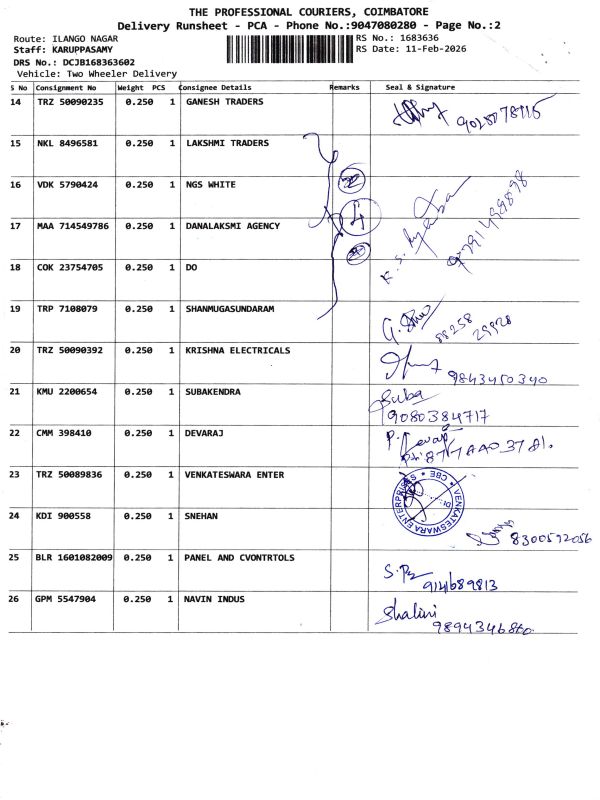 THE PROFESSIONAL COURIERS, COIMBATORE
Delivery Runsheet - PCA - Phone No.:9047080280 - Page No.:2
Route: ILANGO NAGAR
Staff: KARUPPASAMY
DRS No.: DCJB168363602
Vehicle: Two Wheeler Delivery
RS No.: 1683636
RS Date: 11-Feb-2026
S No Consignment No Weight PCS Consignee Details Remarks Seal & Signature
14 TRZ 50090235 0.250 1 GANESH TRADERS
15 NKL 8496581 0.250 1 LAKSHMI TRADERS
16 VDK 5790424 0.250 1 NGS WHITE
17 MAA 714549786 0.250 1 DANALAKSMI AGENCY
18 COK 23754705 0.250 1 DO
19 TRP 7108079 0.250 1 SHANMUGASUNDARAM
88258
29928
20 TRZ 50090392 0.250 1 KRISHNA ELECTRICALS
9843450340
21 KMU 2200654 0.250 1 SUBAKENDRA
Suba
9080384717
22 CMM 398410 0.250 1 DEVARAJ
23 TRZ 50089836 0.250 1 VENKATESWARA ENTER
VENKATESWARA ENTERPRISES * CBE *
24 KDI 900558 0.250 1 SNEHAN
8300592056
25 BLR 1601082009 0.250 1 PANEL AND CVONTRTOLS
26 GPM 5547904 0.250 1 NAVIN INDUS
Shalini